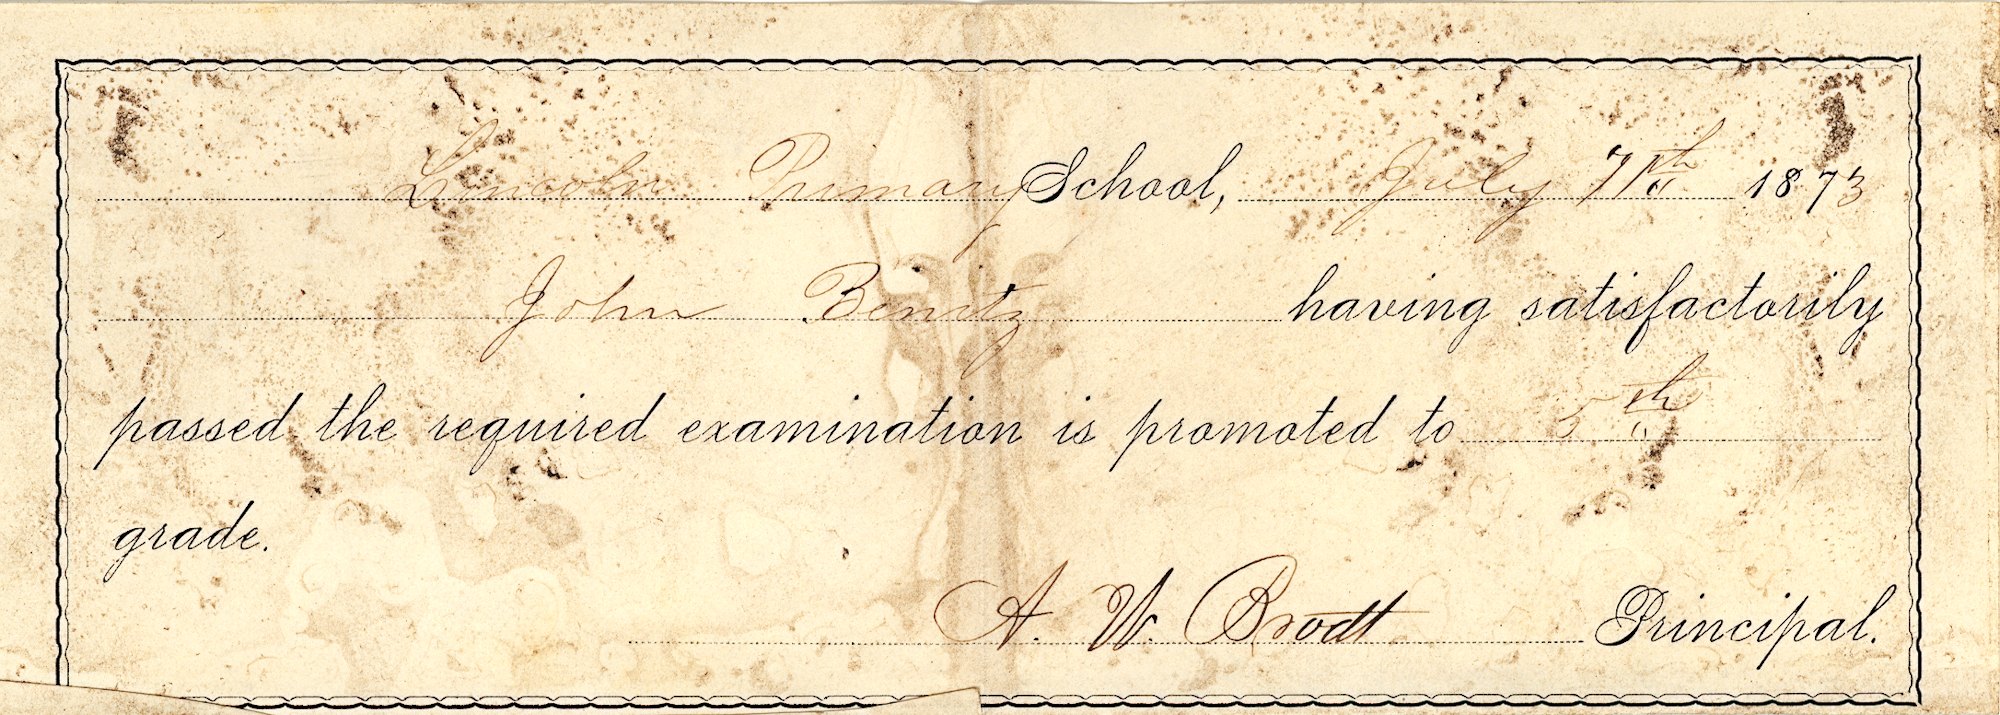 Lincoln Primary School, July 7th 1873
John Benitz having satisfactorily
passed the required examination is promoted to 5th
grade.
A. W. Brodt Principal.